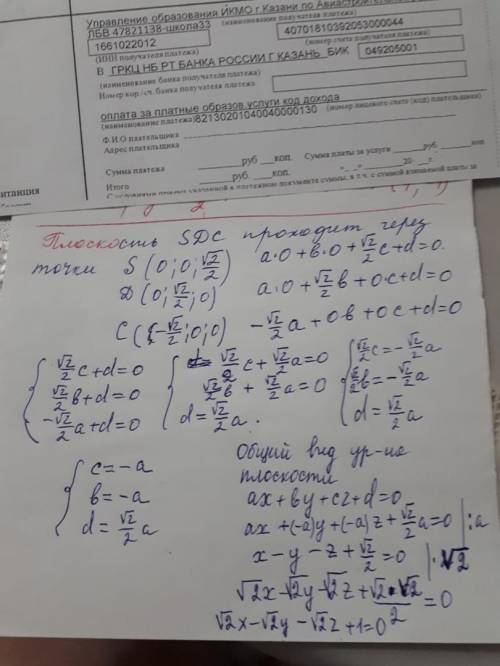 Управление образования ИКМО г Казани по Авиастроительн
(наименование получателя платежа)
ЛБВ 47821138-школа33
1661022012
40701810392053000044
(ИНН получателя платежа)
(номер счета получателя платежа)
В ГРКЦ НБ РТ БАНКА РОССИИ Г КАЗАНЬ БИК 049205001
(наименование банка получателя платежа)
Номер кор./сч. банка получателя платежа
оплата за платные образов.услуги код дохода
(наименование платежа) 82130201040040000130 (номер лицевого счета (код) плательщика)
Ф.И.О плательщика
Адрес плательщика
Сумма платежа ______руб ____коп. Сумма платы за услуги ______руб.____коп.
Итого ______руб. ____коп. 20 г.
итанция
Плоскость SDC проходит через
точки S (0;0;√2/2) a·0+в·0+√2/2c+d=0.
D(0;√2/2;0) a·0+√2/2b+0·c+d=0
C(-√2/2;0;0) -√2/2a+0b+0c+d=0
{√2/2c+d=0 {√2/2c+√2/2a=0 {√2/2c=-√2/2a
√2/2b+d=0 √2/2b+√2/2a=0 √2/2b=-√2/2a
-√2/2a+d=0 d=√2/2a. d=√2/2a
{c=-a
в=-a
d=√2/2a
Общий вид ур-ие
плоскости
ax+by+cz+d=0
ax+(-a)y+(-a)z+√2/2a=0 |:a
x-y-z+√2/2=0 |·√2
√2x-√2y-√2z+√2·√2/2=0
√2x-√2y-√2z+1=0